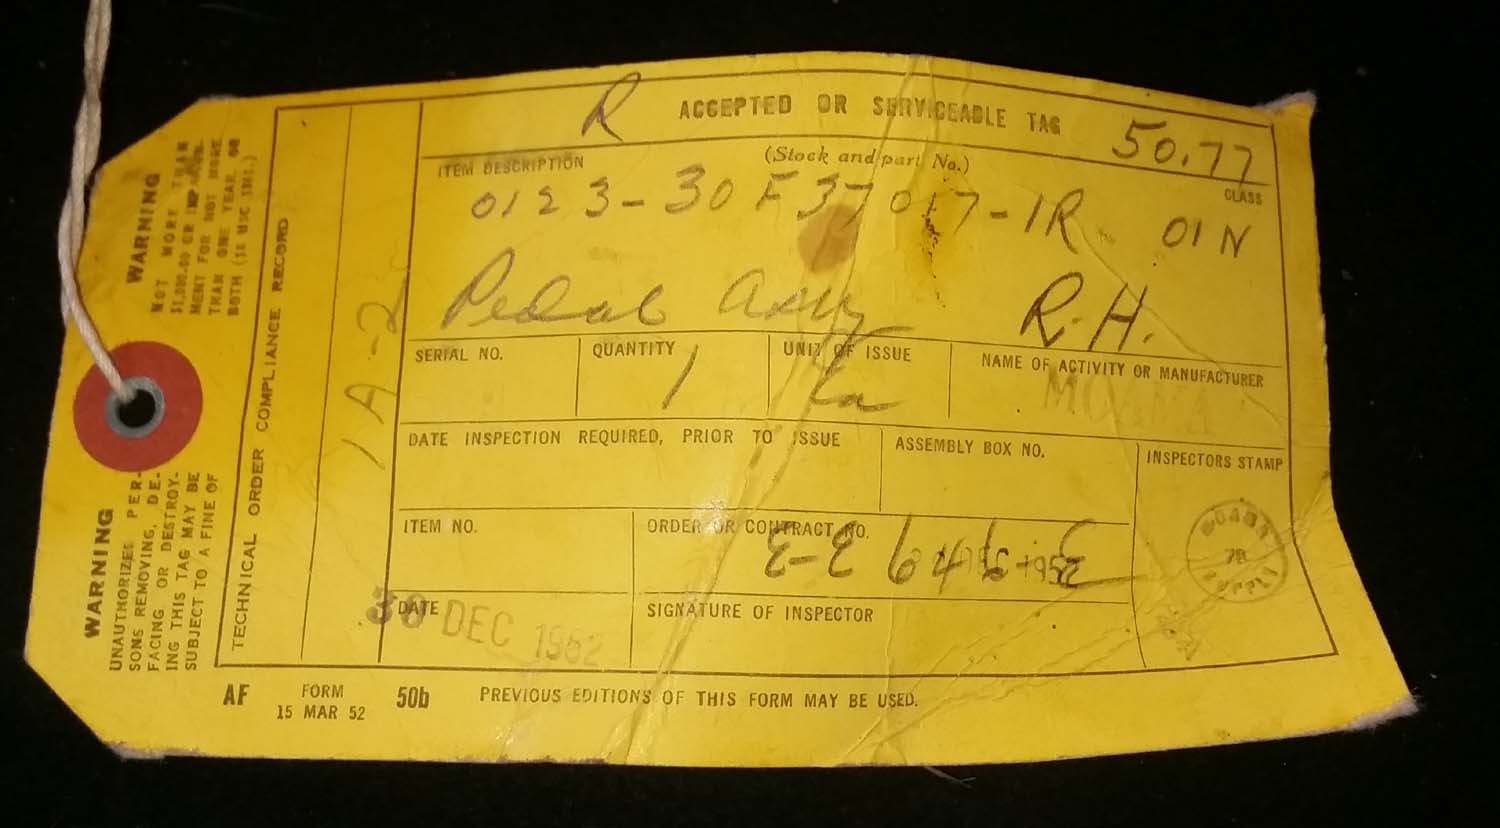 R ACCEPTED OR SERVICEABLE TAG 50.77
ITEM DESCRIPTION (Stock and part No.) CLASS
0123-30F37017-1R 01N
Pedal Assy R.H.
SERIAL NO. QUANTITY UNIT OF ISSUE NAME OF ACTIVITY OR MANUFACTURER
1 Ea
DATE INSPECTION REQUIRED, PRIOR TO ISSUE ASSEMBLY BOX NO. INSPECTORS STAMP
78
ITEM NO. ORDER OR CONTRACT NO.
DATE SIGNATURE OF INSPECTOR
30 DEC 1952
AF FORM 50b PREVIOUS EDITIONS OF THIS FORM MAY BE USED.
15 MAR 52
TECHNICAL ORDER COMPLIANCE RECORD
1A-2
WARNING
UNAUTHORIZED PER-
SONS REMOVING, DE-
FACING, OR DESTROY-
ING THIS TAG MAY BE
SUBJECT TO A FINE OF
WARNING
NOT MORE THAN
$1,000.00 OR IMPRISON-
MENT FOR NOT MORE
THAN ONE YEAR, OR
BOTH (18 USC 1361.)